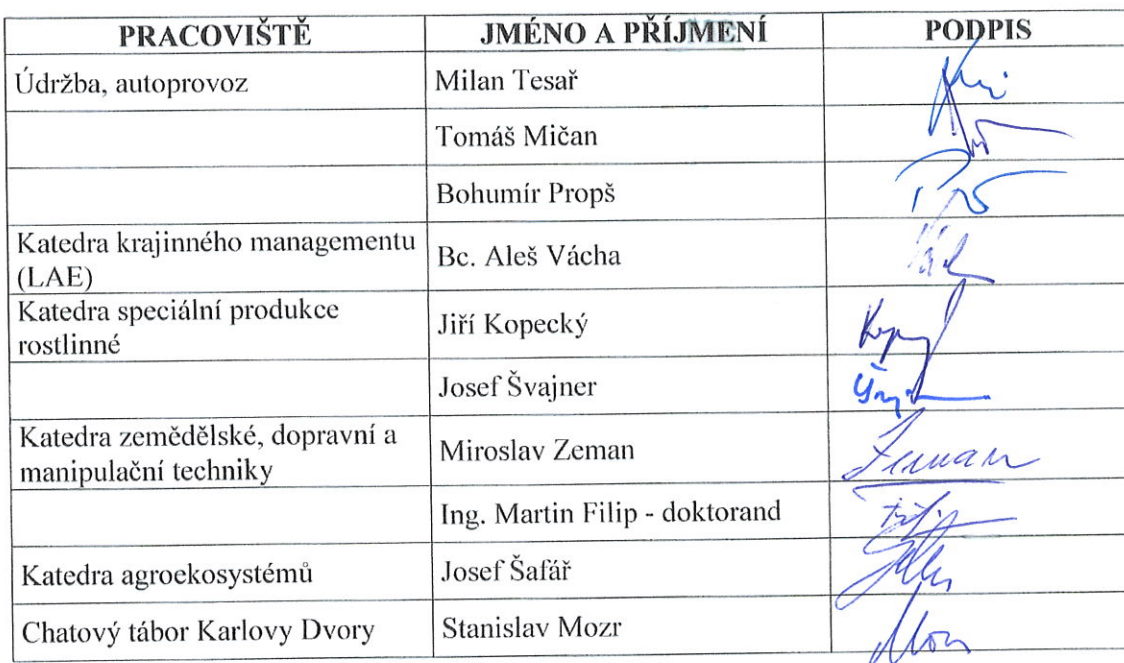 PRACOVIŠTĚ JMÉNO A PŘÍJMENÍ PODPIS
Údržba, autoprovoz Milan Tesař
Tomáš Mičan
Bohumír Propš
Katedra krajinného managementu
(LAE) Bc. Aleš Vácha
Katedra speciální produkce
rostlinné Jiří Kopecký
Josef Švajner
Katedra zemědělské, dopravní a
manipulační techniky Miroslav Zeman Zeman
Ing. Martin Filip - doktorand
Katedra agroekosystémů Josef Šafář
Chatový tábor Karlovy Dvory Stanislav Mozr